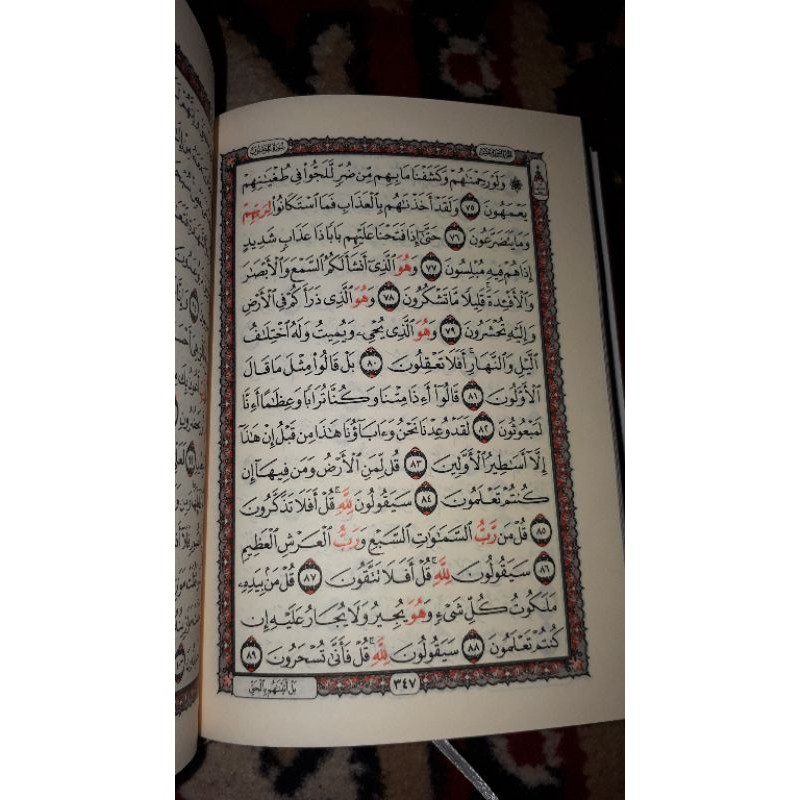 ۞ وَلَوْ رَحِمْنَٰهُمْ وَكَشَفْنَا مَا بِهِم مِّن ضُرٍّ لَّلَجُّوا۟ فِى طُغْيَٰنِهِمْ
يَعْمَهُونَ ٧٥ وَلَقَدْ أَخَذْنَٰهُم بِٱلْعَذَابِ فَمَا ٱسْتَكَانُوا۟ لِرَبِّهِمْ
وَمَا يَتَضَرَّعُونَ ٧٦ حَتَّىٰٓ إِذَا فَتَحْنَا عَلَيْهِم بَابًا ذَا عَذَابٍ شَدِيدٍ
إِذَا هُمْ فِيهِ مُبْلِسُونَ ٧٧ وَهُوَ ٱلَّذِىٓ أَنشَأَ لَكُمُ ٱلسَّمْعَ وَٱلْأَبْصَٰرَ
وَٱلْأَفْـِٔدَةَ ۚ قَلِيلًا مَّا تَشْكُرُونَ ٧٨ وَهُوَ ٱلَّذِى ذَرَأَكُمْ فِى ٱلْأَرْضِ
وَإِلَيْهِ تُحْشَرُونَ ٧٩ وَهُوَ ٱلَّذِى يُحْىِۦ وَيُمِيتُ وَلَهُ ٱخْتِلَٰفُ
ٱلَّيْلِ وَٱلنَّهَارِ ۚ أَفَلَا تَعْقِلُونَ ٨٠ بَلْ قَالُوا۟ مِثْلَ مَا قَالَ
ٱلْأَوَّلُونَ ٨١ قَالُوٓا۟ أَءِذَا مِتْنَا وَكُنَّا تُرَابًا وَعِظَٰمًا أَءِنَّا
لَمَبْعُوثُونَ ٨٢ لَقَدْ وُعِدْنَا نَحْنُ وَءَابَآؤُنَا هَٰذَا مِن قَبْلُ إِنْ هَٰذَآ
إِلَّآ أَسَٰطِيرُ ٱلْأَوَّلِينَ ٨٣ قُل لِّمَنِ ٱلْأَرْضُ وَمَن فِيهَآ إِن
كُنتُمْ تَعْلَمُونَ ٨٤ سَيَقُولُونَ لِلَّهِ ۚ قُلْ أَفَلَا تَذَكَّرُونَ
٨٥ قُلْ مَن رَّبُّ ٱلسَّمَٰوَٰتِ ٱلسَّبْعِ وَرَبُّ ٱلْعَرْشِ ٱلْعَظِيمِ
٨٦ سَيَقُولُونَ لِلَّهِ ۚ قُلْ أَفَلَا تَتَّقُونَ ٨٧ قُلْ مَنۢ بِيَدِهِۦ
مَلَكُوتُ كُلِّ شَىْءٍ وَهُوَ يُجِيرُ وَلَا يُجَارُ عَلَيْهِ إِن
كُنتُمْ تَعْلَمُونَ ٨٨ سَيَقُولُونَ لِلَّهِ ۚ قُلْ فَأَنَّىٰ تُسْحَرُونَ ٨٩
٣٤٧
بَلْ أَتَيْنَٰهُم بِٱلْحَقِّ